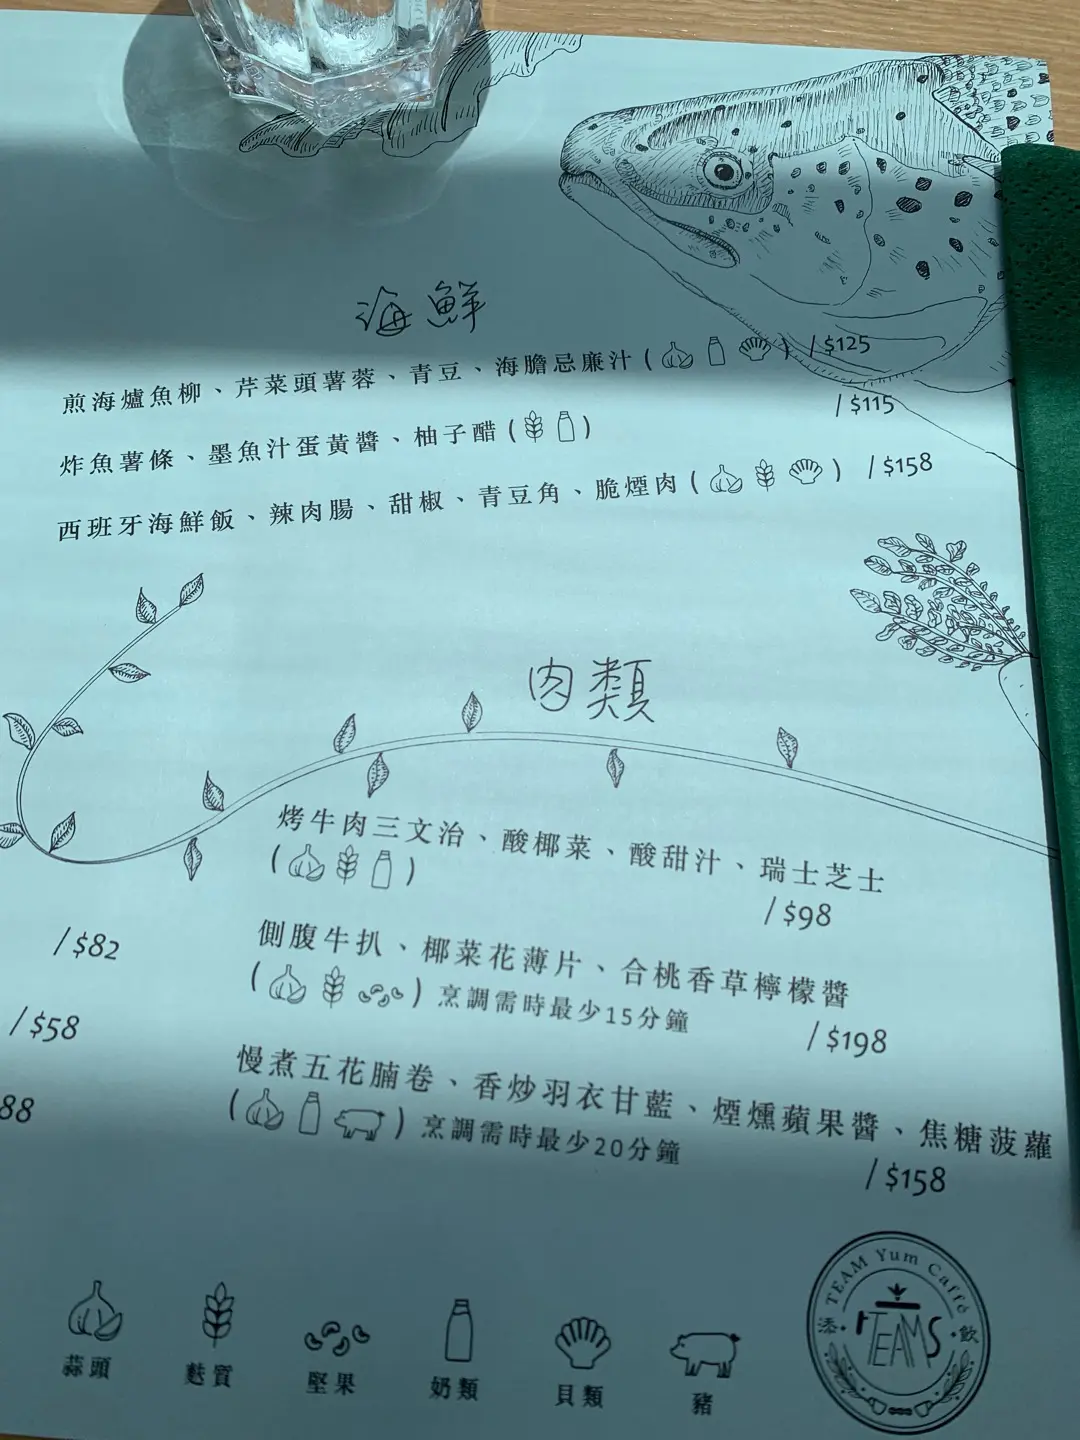 海鮮
煎海爐魚柳、芹菜頭薯蓉、青豆、海膽忌廉汁 ( ) / $125
炸魚薯條、墨魚汁蛋黃醬、柚子醋 ( ) / $115
西班牙海鮮飯、辣肉腸、甜椒、青豆角、脆煙肉 ( ) / $158
肉類
烤牛肉三文治、酸椰菜、酸甜汁、瑞士芝士
( )
/ $98
側腹牛扒、椰菜花薄片、合桃香草檸檬醬
( ) 烹調需時最少15分鐘
/ $198
慢煮五花腩卷、香炒羽衣甘藍、煙燻蘋果醬、焦糖菠蘿
( ) 烹調需時最少20分鐘
/ $158
/ $82
/ $58
88
蒜頭
麩質
堅果
奶類
貝類
豬
TEAM Yum Caffé
添 TEAMS 飲